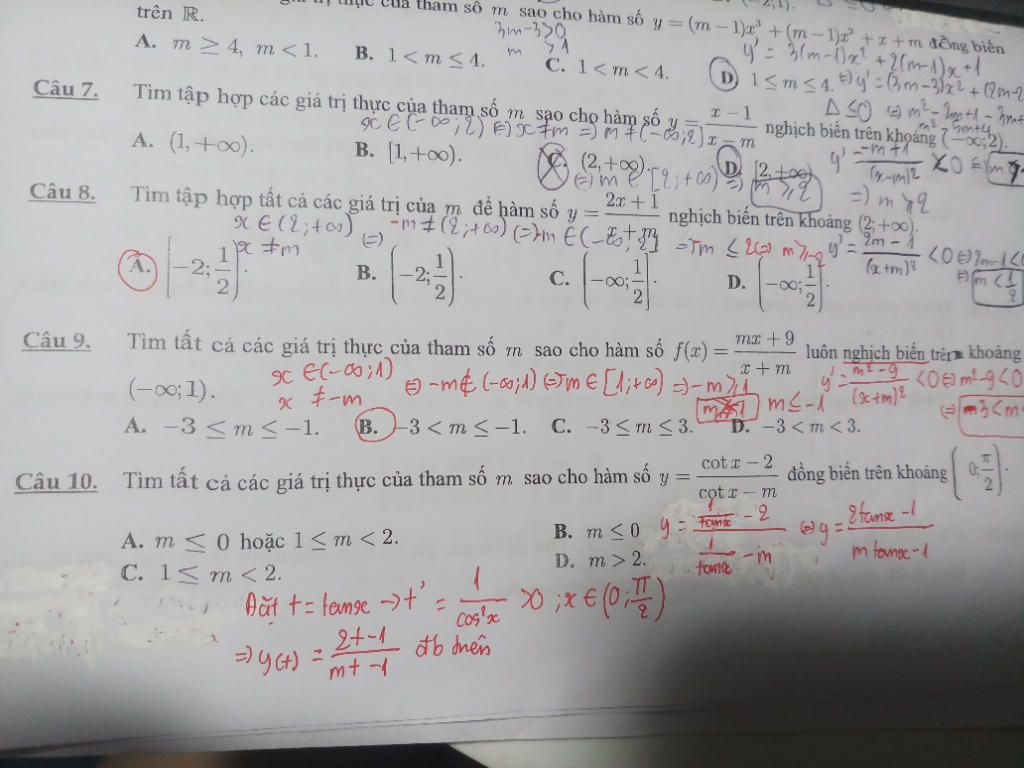 của tham số m sao cho hàm số y = (m − 1)x³ + (m − 1)x² + x + m đồng biến
trên ℝ.
3m-3>0
m > 1
y' = 3(m-1)x² + 2(m-1)x + 1
A. m ≥ 4, m < 1. B. 1 < m ≤ 4. C. 1 < m < 4. D. 1 ≤ m ≤ 4.
⇔ y' = (3m-3)x² + (2m-2
Δ ≤ 0 ⇔ m² - 2m+1 - 3m+
Câu 7. Tìm tập hợp các giá trị thực của tham số m sao cho hàm số y = (x − 1)/(x − m) nghịch biến trên khoảng (−∞; 2).
x ∈ (-∞; 2) ⇔ x ≠ m ⇒ m ≠ (-∞; 2)
A. (1, +∞). B. [1, +∞). C. (2, +∞). D. [2, +∞)
y' = (-m+1)/(x-m)² < 0
⇒ m ∈ [2; +∞) ⇒ m ≥ 2
⇒ m ≥ 2
Câu 8. Tìm tập hợp tất cả các giá trị của m để hàm số y = (2x + 1)/(x + m) nghịch biến trên khoảng (2; +∞).
x ∈ (2; +∞) ⇔ -m ≠ (2; +∞) ⇔ -m ∈ (-∞; 2] ⇒ -m ≤ 2 ⇔ m ≥ -2
x ≠ m
y' = (2m - 1)/(x+m)² < 0 ⇔ 2m-1 < 0
⇔ m < 1/2
A. [−2; 1/2). B. (−2; 1/2). C. (−∞; 1/2]. D. (−∞; 1/2).
Câu 9. Tìm tất cả các giá trị thực của tham số m sao cho hàm số f(x) = (mx + 9)/(x + m) luôn nghịch biến trên khoảng
(−∞; 1).
x ∈ (-∞; 1)
x ≠ -m
⇔ -m ∉ (-∞; 1) ⇔ -m ∈ [1; +∞) ⇒ -m ≥ 1
m ≤ -1
y' = (m² - 9)/(x+m)² < 0 ⇔ m² - 9 < 0
⇔ -3 < m <
A. −3 ≤ m ≤ −1. B. −3 < m ≤ −1. C. −3 ≤ m ≤ 3. D. −3 < m < 3.
Câu 10. Tìm tất cả các giá trị thực của tham số m sao cho hàm số y = (cot x − 2)/(cot x − m) đồng biến trên khoảng (0; π/2).
A. m ≤ 0 hoặc 1 ≤ m < 2. B. m ≤ 0
C. 1 ≤ m < 2. D. m > 2.
y = (1/tanx - 2)/(1/tanx - m) ⇔ y = (2tanx - 1)/(m tanx - 1)
Đặt t = tanx → t' = 1/cos²x > 0 ; x ∈ (0; π/2)
⇒ y(t) = (2t - 1)/(mt - 1) đb trên